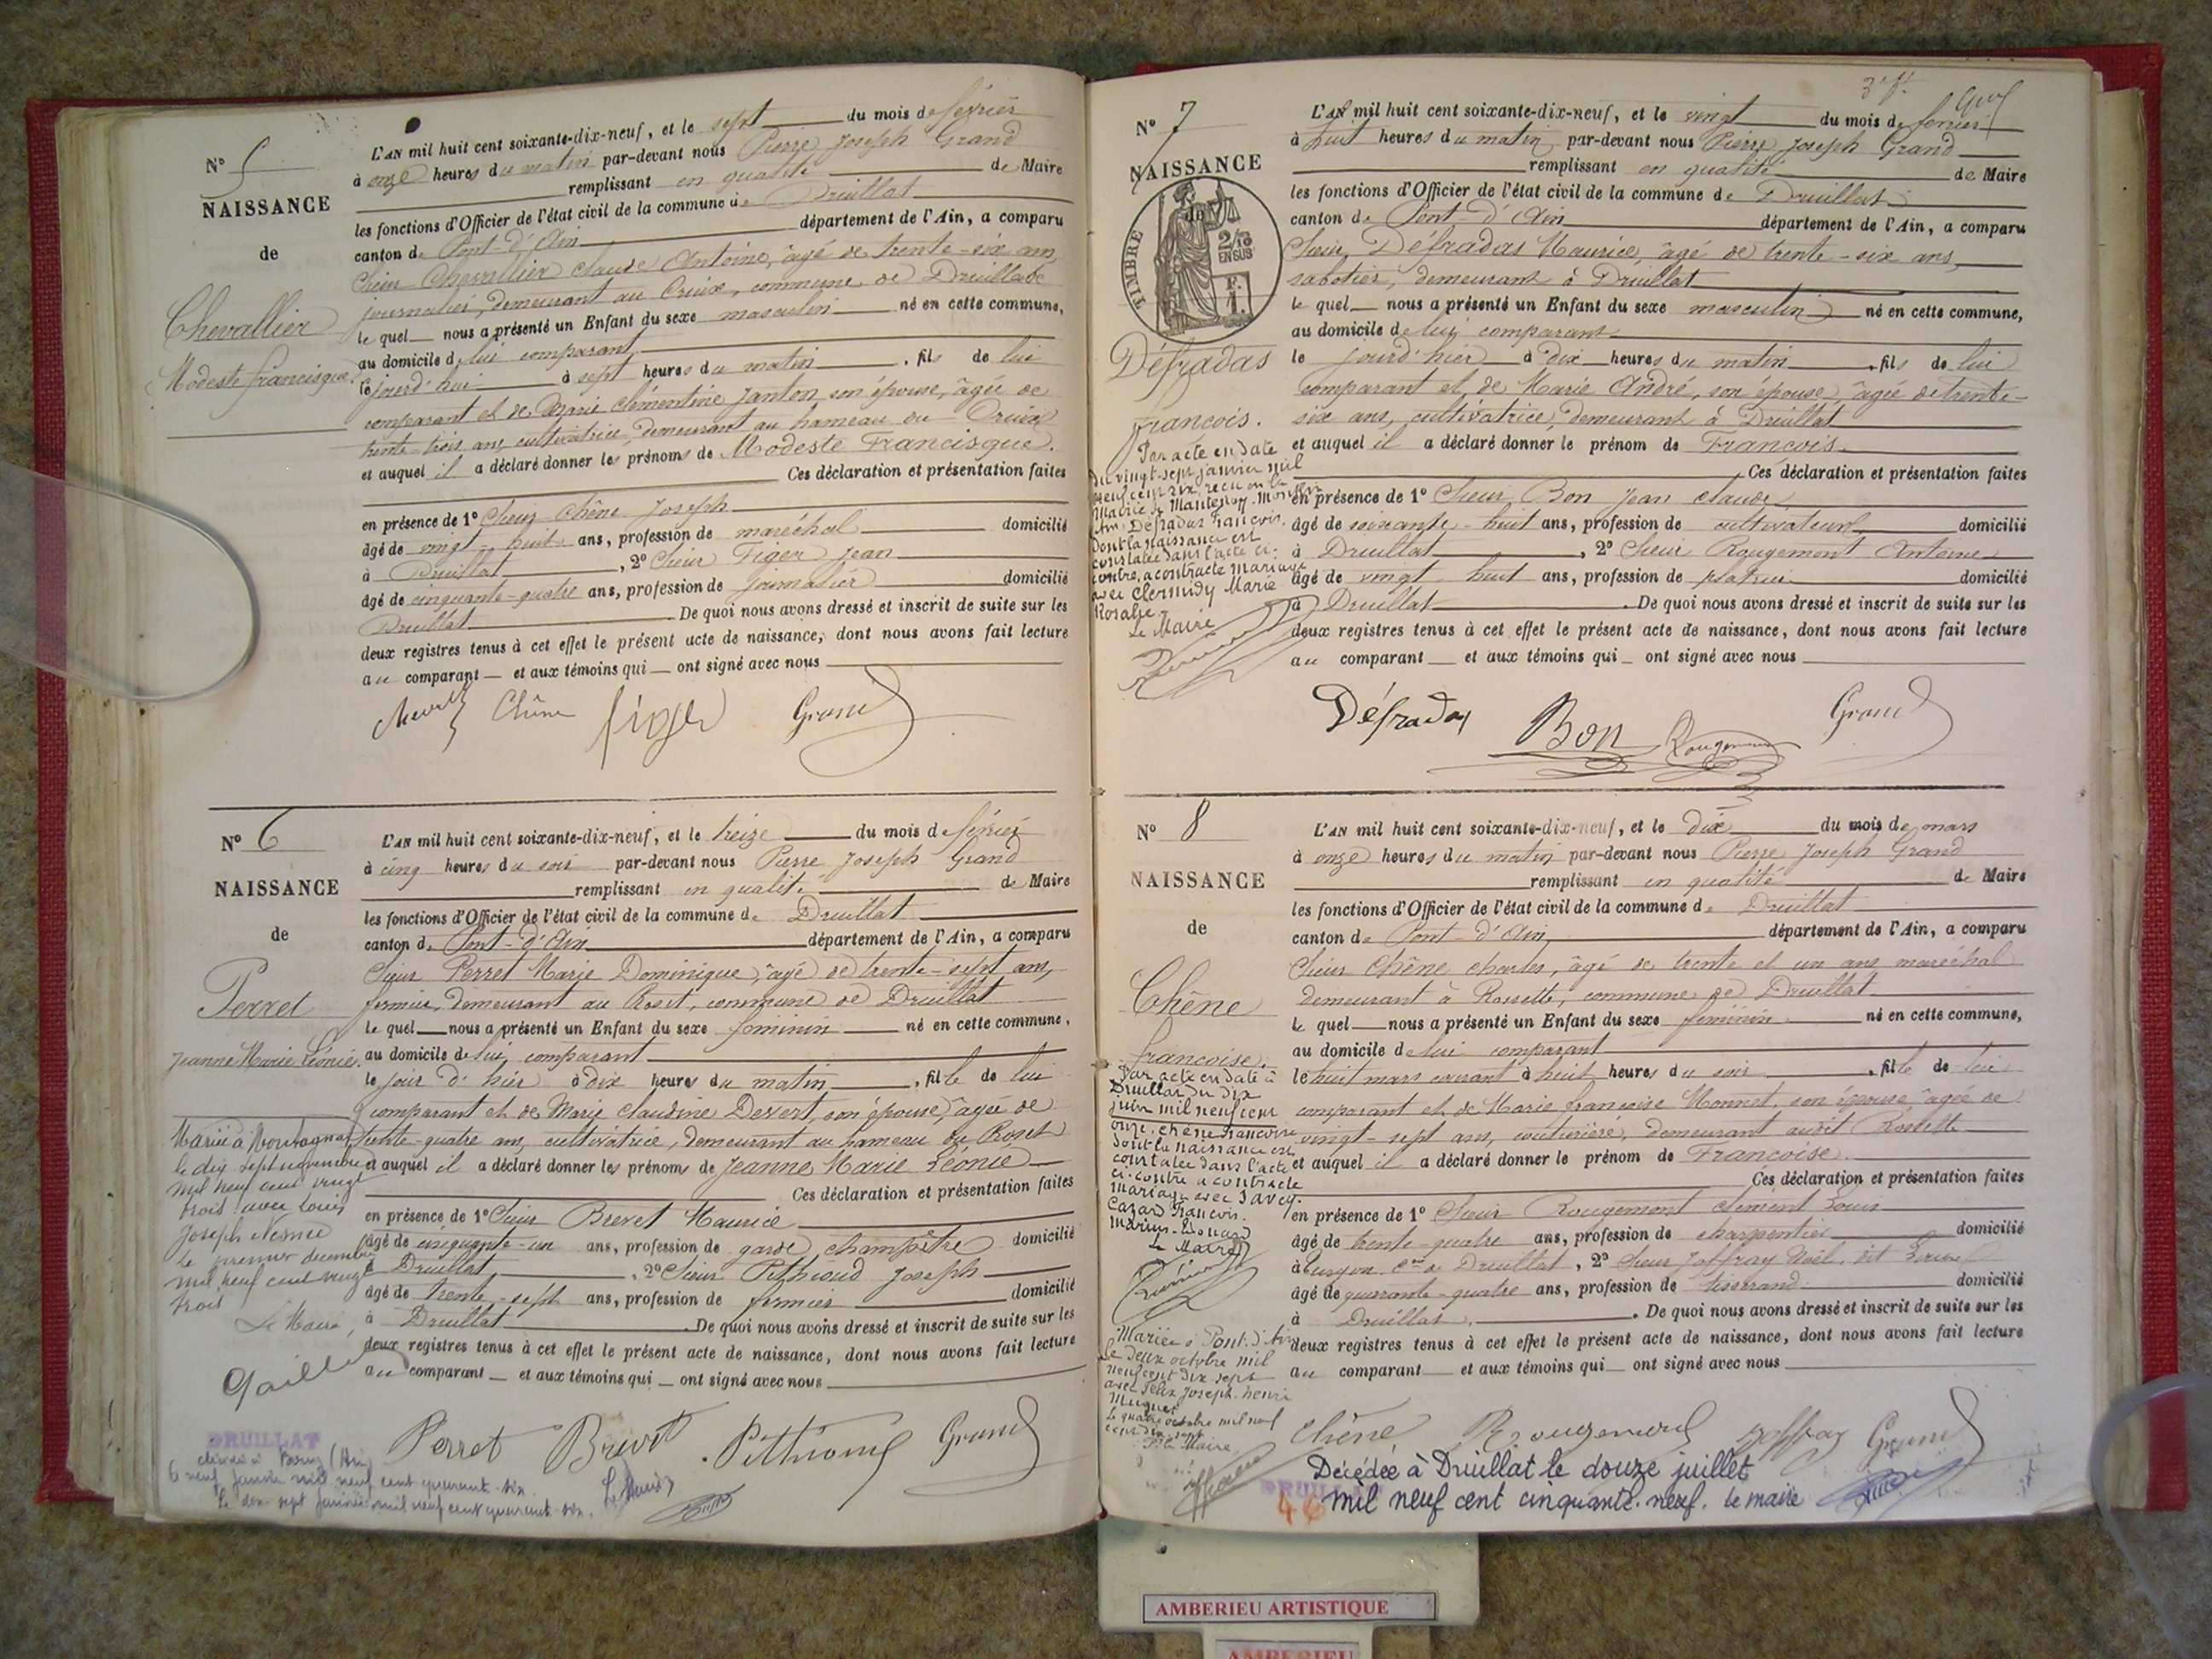 N° 5
NAISSANCE
de
Chevallier
Modeste Francisque
L'AN mil huit cent soixante-dix-neuf, et le sept du mois de février
à onze heures du matin par-devant nous Pierre Joseph Grand
remplissant en qualité de Maire
les fonctions d'Officier de l'état civil de la commune de Druillat
canton de Pont-d'Ain département de l'Ain, a comparu
Sieur Chevallier Claude Antoine, âgé de trente-six ans,
journalier, demeurant au Creux, commune de Druillat
le quel nous a présenté un Enfant du sexe masculin né en cette commune,
au domicile de lui comparant
le jourd'hui à sept heures du matin, fils de lui
comparant et de Marie Clémentine Janton, son épouse, âgée de
trente-trois ans, cultivatrice, demeurant au hameau du Creux
et auquel il a déclaré donner les prénoms de Modeste Francisque.
Ces déclaration et présentation faites
en présence de 1° Sieur Chêne Joseph
âgé de vingt-huit ans, profession de maréchal domicilié
à Druillat, 2° Sieur Figer Jean
âgé de cinquante-quatre ans, profession de journalier domicilié
Druillat. De quoi nous avons dressé et inscrit de suite sur les
deux registres tenus à cet effet le présent acte de naissance, dont nous avons fait lecture
au comparant et aux témoins qui ont signé avec nous
Chêne Figer Grand
N° 6
NAISSANCE
de
Perret
Jeanne Marie Léonie.
L'AN mil huit cent soixante-dix-neuf, et le treize du mois de février
à cinq heures du soir par-devant nous Pierre Joseph Grand
remplissant en qualité de Maire
les fonctions d'Officier de l'état civil de la commune de Druillat
canton de Pont-d'Ain département de l'Ain, a comparu
Sieur Perret Marie Dominique, âgé de trente-sept ans,
fermier, demeurant au Roset, commune de Druillat
le quel nous a présenté un Enfant du sexe féminin né en cette commune,
au domicile de lui comparant
le jour d'hier à dix heures du matin, fille de lui
comparant et de Marie Claudine Desert, son épouse, âgée de
trente-quatre ans, cultivatrice, demeurant au hameau du Roset
et auquel il a déclaré donner les prénoms de Jeanne Marie Léonie
Ces déclaration et présentation faites
en présence de 1° Sieur Brevet Maurice
âgé de cinquante-un ans, profession de garde champêtre domicilié
à Druillat, 2° Sieur Pithioud Joseph
âgé de trente-sept ans, profession de fermier domicilié
à Druillat. De quoi nous avons dressé et inscrit de suite sur les
deux registres tenus à cet effet le présent acte de naissance, dont nous avons fait lecture
au comparant et aux témoins qui ont signé avec nous
Mariée à Montagnat
le dix-sept novembre
mil neuf cent vingt
trois avec Louis
Joseph
le premier décembre
mil neuf cent vingt
trois
Le Maire,
Perret Brevet Pithioud Grand
DRUILLAT
décédée à (Ain)
le neuf janvier mil neuf cent quarante-six
Le dix-sept janvier mil neuf cent quarante-six. Le Maire
N° 7
NAISSANCE
de
TIMBRE
2/10
EN SUS
F.
1.
Défradas
François.
Par acte en date
du vingt-sept janvier mil
neuf cent six, reçu en la
Mairie de Mantenay-Montlin
Ain, Défradas François,
dont la naissance est
constatée dans l'acte ci-
contre, a contracté mariage
avec Clermidy Marie
Rosalie.
Le Maire
L'AN mil huit cent soixante-dix-neuf, et le vingt du mois de février
à huit heures du matin par-devant nous Pierre Joseph Grand
remplissant en qualité de Maire
les fonctions d'Officier de l'état civil de la commune de Druillat
canton de Pont-d'Ain département de l'Ain, a comparu
Sieur Défradas Maurice, âgé de trente-six ans,
sabotier, demeurant à Druillat
le quel nous a présenté un Enfant du sexe masculin né en cette commune,
au domicile de luy comparant
le jourd'hier à dix heures du matin, fils de lui
comparant et de Marie André, son épouse, âgée de trente-
six ans, cultivatrice, demeurant à Druillat
et auquel il a déclaré donner le prénom de François.
Ces déclaration et présentation faites
en présence de 1° Sieur Bon Jean Claude
âgé de soixante-huit ans, profession de cultivateur domicilié
à Druillat, 2° Sieur Rougemont Antoine
âgé de vingt-huit ans, profession de platrier domicilié
à Druillat. De quoi nous avons dressé et inscrit de suite sur les
deux registres tenus à cet effet le présent acte de naissance, dont nous avons fait lecture
au comparant et aux témoins qui ont signé avec nous
Défradas Bon Rougemont Grand
N° 8
NAISSANCE
de
Chêne
Françoise.
Par acte en date à
Druillat du dix
juin mil neuf cent
onze, Chêne Françoise
dont la naissance est
constatée dans l'acte
ci-contre a contracté
mariage avec
François
Marius-Edouard
Le Maire
Mariée à Pont-d'Ain
le deux octobre mil
neuf cent dix sept
avec Félix Joseph Henri
Muguet
Le quatre octobre mil neuf
cent dix sept
Le Maire
L'AN mil huit cent soixante-dix-neuf, et le dix du mois de mars
à onze heures du matin par-devant nous Pierre Joseph Grand
remplissant en qualité de Maire
les fonctions d'Officier de l'état civil de la commune de Druillat
canton de Pont-d'Ain département de l'Ain, a comparu
Sieur Chêne Charles, âgé de trente et un ans, maréchal
demeurant à Rossette, commune de Druillat
le quel nous a présenté un Enfant du sexe féminin né en cette commune,
au domicile de lui comparant
le huit mars courant à huit heures du soir, fille de lui
comparant et de Marie Françoise Monnet, son épouse âgée de
vingt-sept ans, couturière, demeurant audit Rossette
et auquel il a déclaré donner le prénom de Françoise.
Ces déclaration et présentation faites
en présence de 1° Sieur Rougemont Clément Louis
âgé de trente-quatre ans, profession de charpentier domicilié
à Cne de Druillat, 2° Sieur Joffray Noël, dit
âgé de quarante-quatre ans, profession de tisserand domicilié
à Druillat. De quoi nous avons dressé et inscrit de suite sur les
deux registres tenus à cet effet le présent acte de naissance, dont nous avons fait lecture
au comparant et aux témoins qui ont signé avec nous
Chêne Rougemont Joffray Grand
Décédée à Druillat le douze juillet
mil neuf cent cinquante-neuf. Le maire
AMBERIEU ARTISTIQUE
AMBERIEU